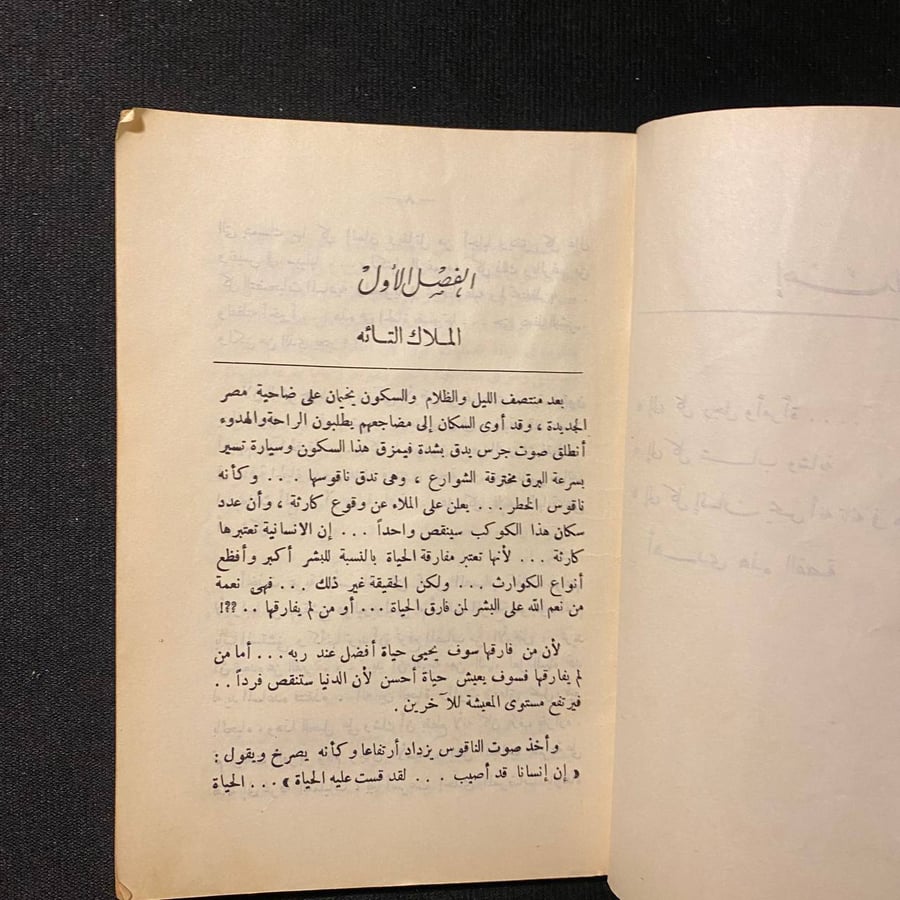 الفصل الأول
الملاك التائه
بعد منتصف الليل والظلام والسكون يخيمان على ضاحية مصر
الجديدة ، وقد أوى السكان إلى مضاجعهم يطلبون الراحة والهدوء
أنطلق صوت جرس يدق بشدة فيمزق هذا السكون وسيارة تسير
بسرعة البرق مخترقة الشوارع ، وهى تدق ناقوسها . . . وكأنه
ناقوس الخطر . . . يعلن على الملاء عن وقوع كارثة ، وأن عدد
سكان هذا الكوكب سينقص واحداً . . . إن الانسانية تعتبرها
كارثة . . . لأنها تعتبر مفارقة الحياة بالنسبة للبشر أكبر وأفظع
أنواع الكوارث . . . ولكن الحقيقة غير ذلك . . . فهى نعمة
من نعم الله على البشر لمن فارق الحياة . . . أو من لم يفارقها . . ؟؟!
لأن من فارقها سوف يحيى حياة أفضل عند ربه . . . أما من
لم يفارقها فسوف يعيش حياة أحسن لأن الدنيا ستنقص فرداً . .
فيرتفع مستوى المعيشة للآخرين .
وأخذ صوت الناقوس يزداد أرتفاعا وكأنه يصرخ ويقول :
« إن إنسانا قد أصيب . . . لقد قست عليه الحياة » . . . الحياة